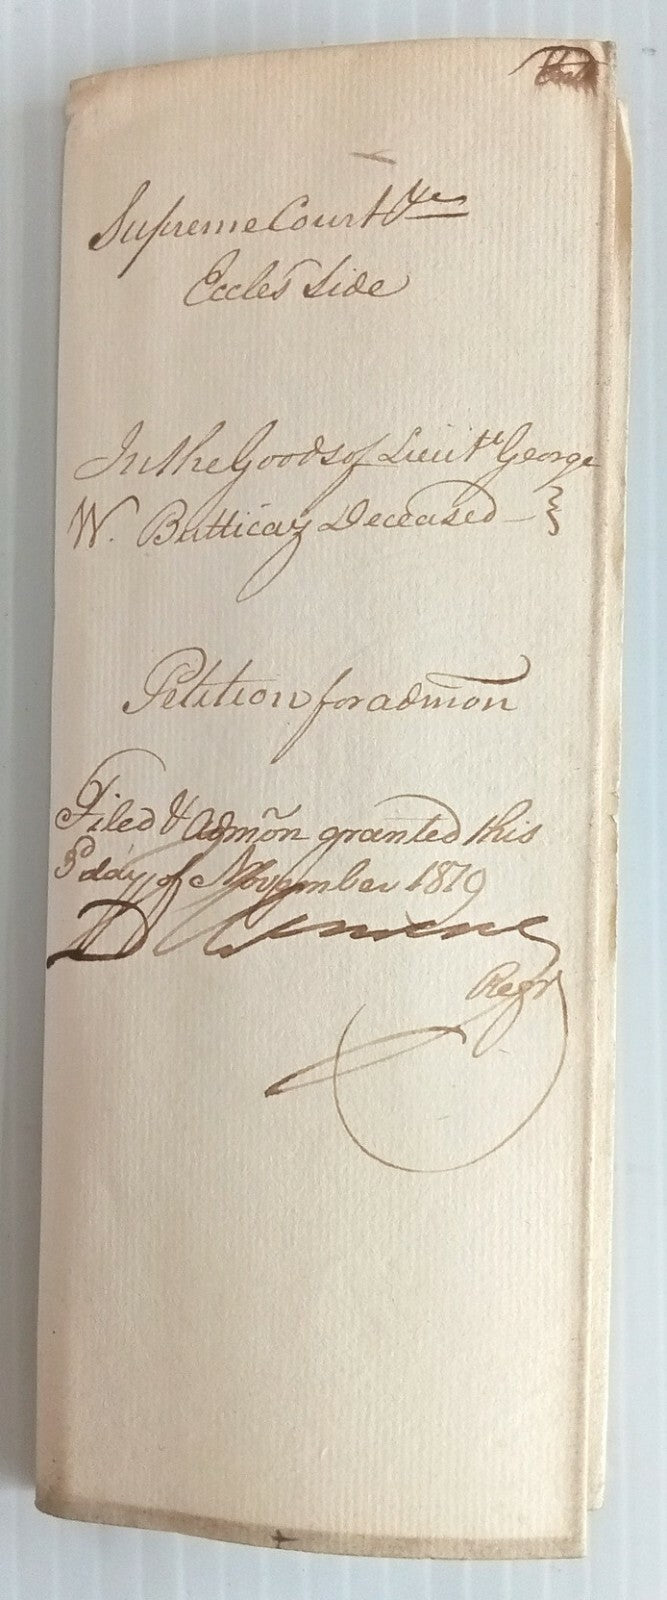 Supreme Court &c
Eccles Side
In the Goods of Lieut George
W. Butticaz Deceased
Petition for admon
Filed & Admon granted this
3d day of November 1819
Regr